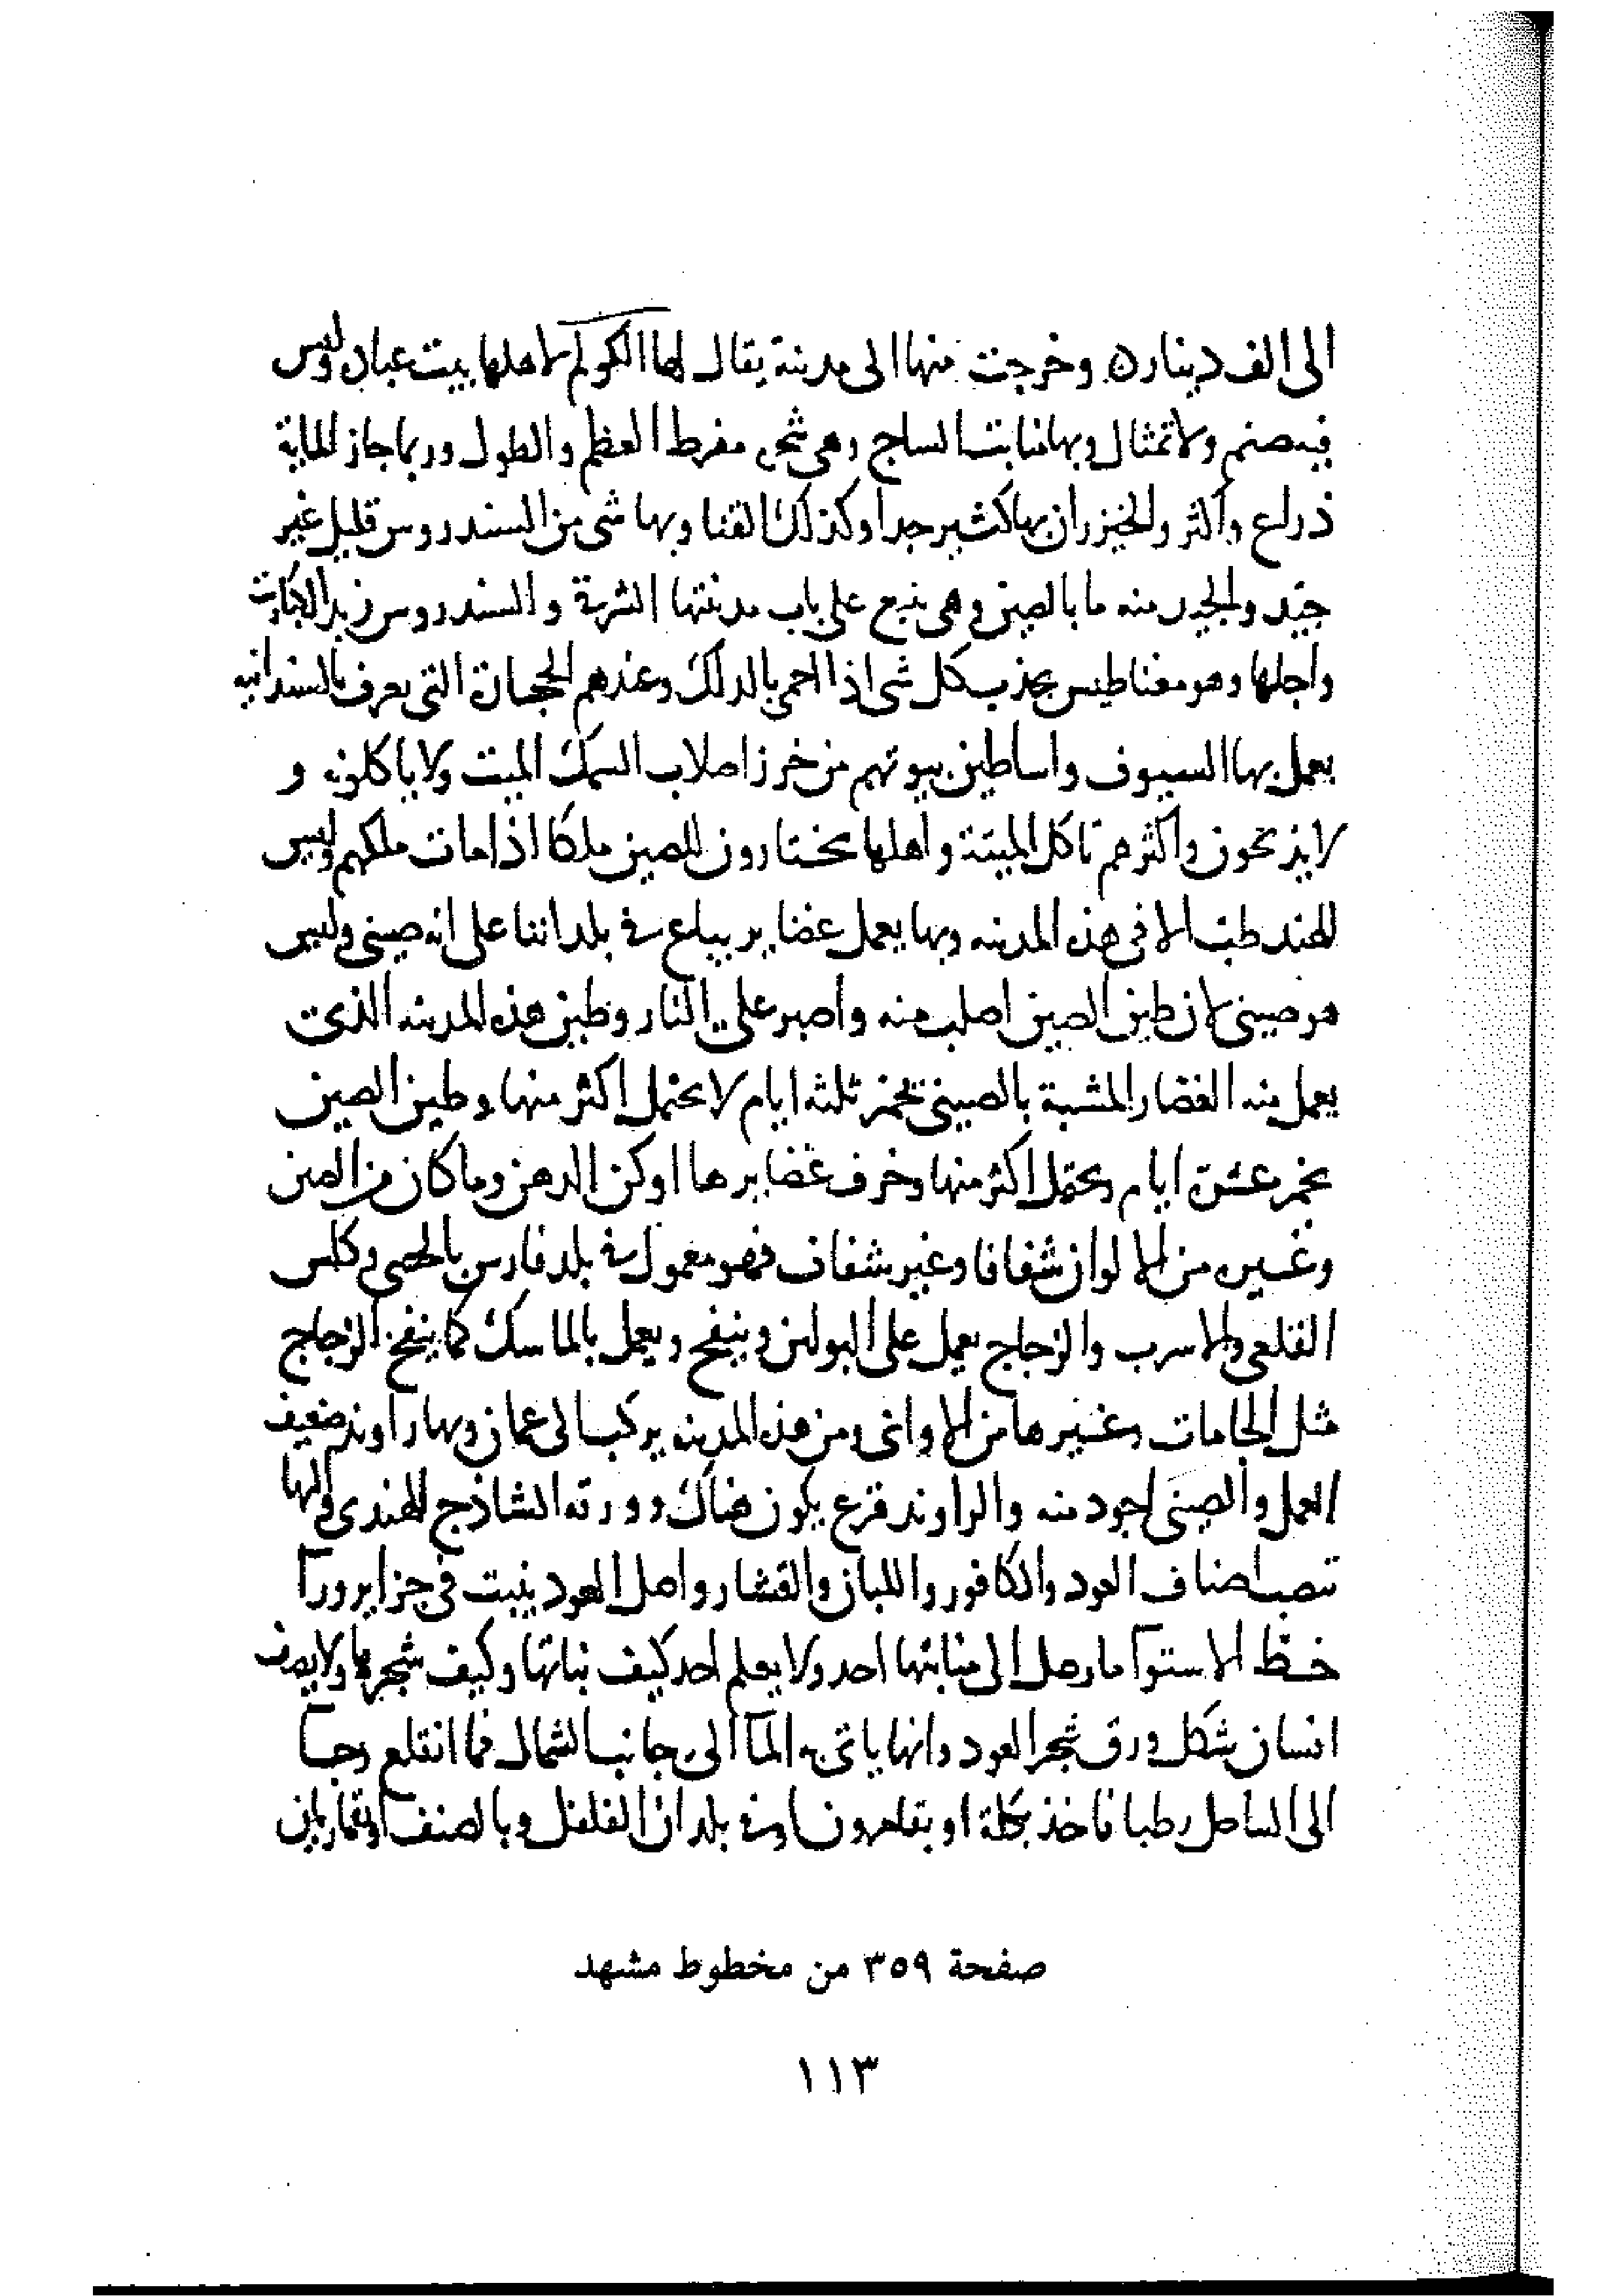 الى الف دينار ٥ وخرجت منها الى مدينة يقال لها الكولم لاهلها بيت عبادة وليس
فيه صنم ولا تمثال وبها منابت الساج وهى شجر مفرط العظم والطول وربما جاز الماية
ذراع واكثر والخيزران بها كثير جدا وكذلك القنا وبها شى من السندروس قليل غير
جيد والجيد منه ما بالصين وهى ينبع على باب مدينتها الشرقية والسندروس زبد
واجلها وهو مغناطيس يجذب كل شى اذا احمى بالدلك وعندهم الحجارة التى يعرف بالسندانيه
يعمل بها السيوف واساطين بيوتهم من خرز اصلاب السمك الميت ولا ياكلونه و
لا يذبحون واكثرهم تاكل الميتة واهلها يختارون للصين ملكا اذا مات ملكهم وليس
للهند طب الا فى هذه المدينه وبها يعمل غضاير يباع فى بلداننا على انه صينى وليس
هو صينى لان طين الصين اصلب منه واصبر على النار وطين هذه المدينه الذى
يعمل منه الغضار المشبة بالصينى تخمر ثلثه ايام لا يحتمل اكثر منها وطين الصين
يخمر عشرة ايام ويحتمل اكثر منها وخزف غضايرها ادكن الدهن وما كان من الصين
وغيره من الالوان شفافا وغير شفاف فهو معمول فى بلد فارس بالحصى وكلس
القلعى والاسرب والزجاج يعمل على البولين وينفخ ويعمل بالماسك كما ينفخ الزجاج
مثل الجامات وغيرها من الاوانى ومن هذه المدينه يركب الى عمان وبها راوند ضعيف
العمل والصينى اجود منه والراوند قرع يكون هناك وورقه الشاذج الهندى واليها
تنصب اصناف العود والكافور واللبان والقشار واصل العود ينبت فى جزاير ورآ
خط الاستوآ ما وصل الى منابتها احد ولا يعلم احد كيف نباتها وكيف شجرها ولا يصف
انسان شكل ورق شجر العود وانها ياتى به المآ الى جانب الشمال فما انقلع وجا
الى الساحل رطبا فاخذ بكلة او بقامرون او فى بلدان الفلفل وبالصنف او بقماريان
صفحة ٣٥٩ من مخطوط مشهد
١١٣